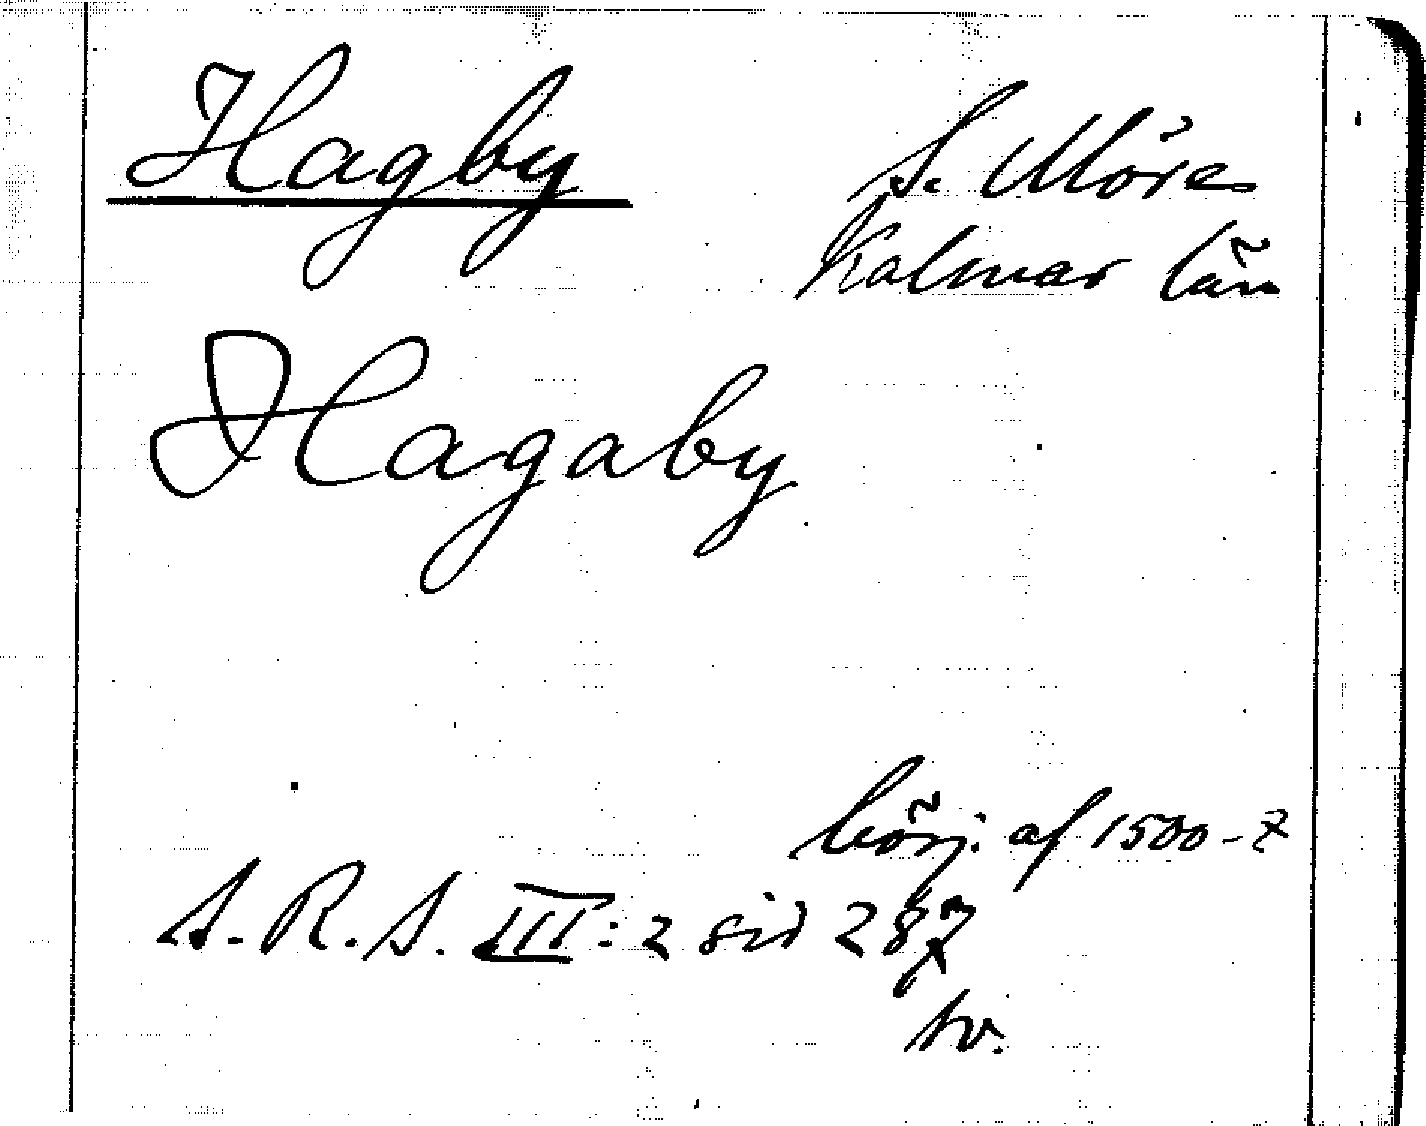 Hagby
S. Möre
Kalmar län
Hagaby
börj. af 1500-t
S. R. S. III: 2 sid 287
sv.